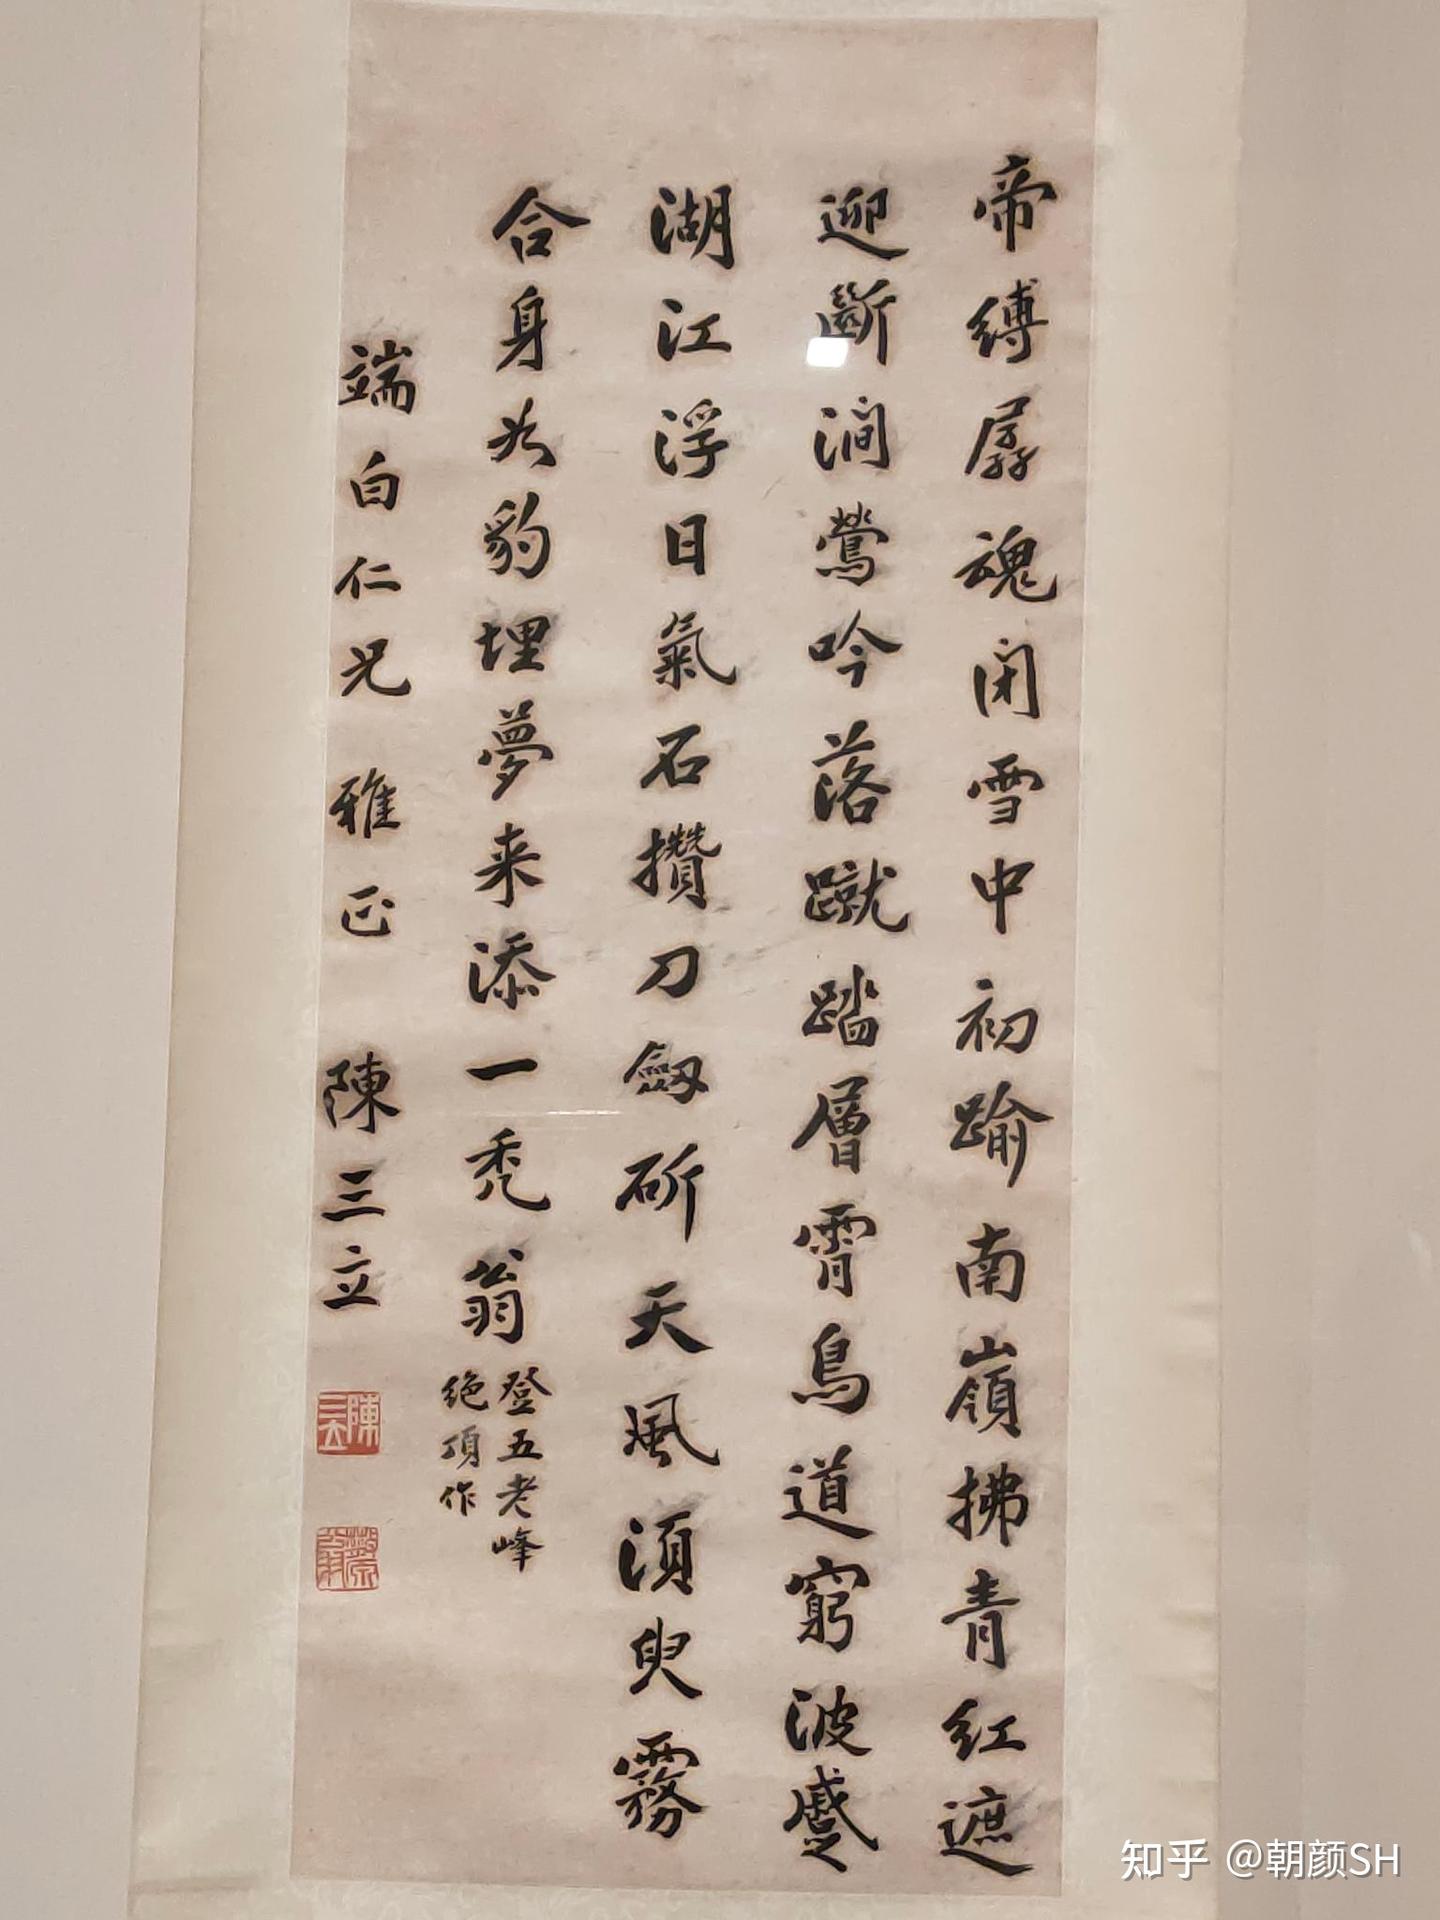 帝縛孱魂閉雪中初踰南嶺拂青紅遮
迎斷澗鶯吟落蹴踏層霄鳥道窮波蹙
湖江浮日氣石攢刀劒斫天風須臾霧
合身為豹埋夢来添一禿翁
登五老峰
絶頂作
端白仁兄 雅正 陳三立
陳三立
知乎 @朝颜SH